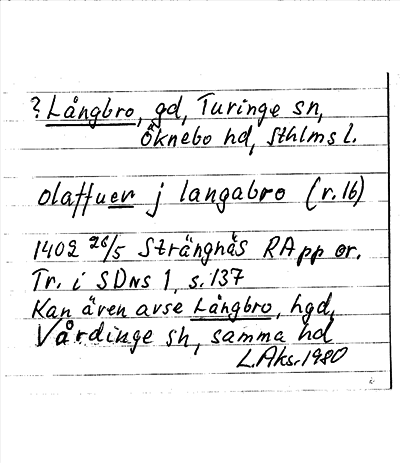 ? Långbro, gd, Turinge sn,
Öknebo hd, Sthlms l.
olaffuen j langabro (r.16)
1402 26/5 Strängnäs RApp or.
Tr. i SDns 1, s. 137
Kan även avse Långbro, hgd,
Vårdinge sn, samma hd
L.Aks. 1980